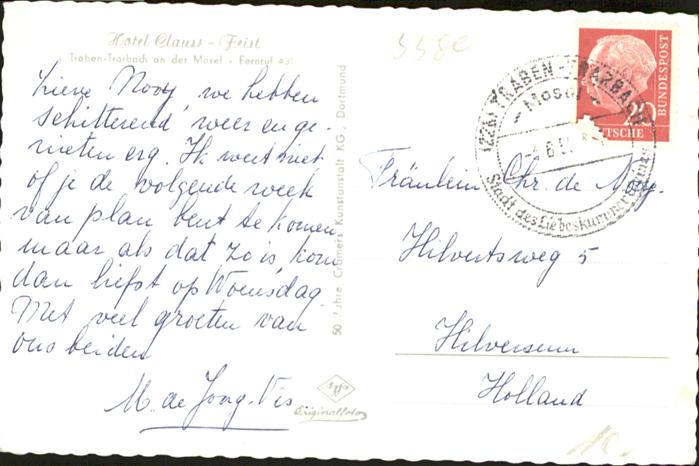 Hotel Clauss - Feist
Traben-Trarbach an der Mosel - Fernruf 431
Lieve Nooy we hebben
schitterend weer en ge-
nieten erg. Ik weet niet
of je de volgende week
van plan bent te komen
maar als dat zo is, kom
dan liefst op Woensdag.
Met veel groeten van
ons beiden
M. de Jong-Vis
50 Jahre Cramers Kunstanstalt KG., Dortmund
Agfa
Originalfoto
(22b) TRABEN-TRARBACH
- Mosel -
Stadt des
20
BUNDESPOST
DEUTSCHE
Fräulein Chr. de Nooy.
Hilvertsweg 5
Hilversum
Holland